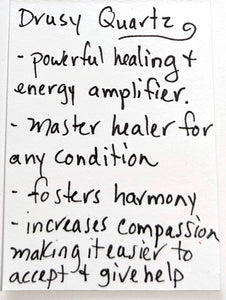 Drusy Quartz
- powerful healing +
energy amplifier.
- master healer for
any condition
- fosters harmony
- increases compassion
making it easier to
accept + give help